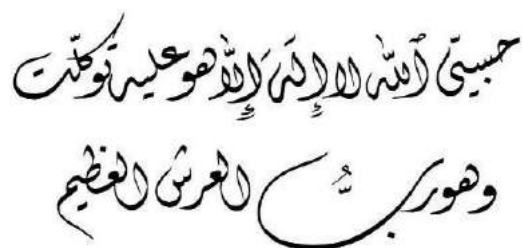 حسبي الله لا إله إلا هو عليه توكلت
وهو رب العرش العظيم